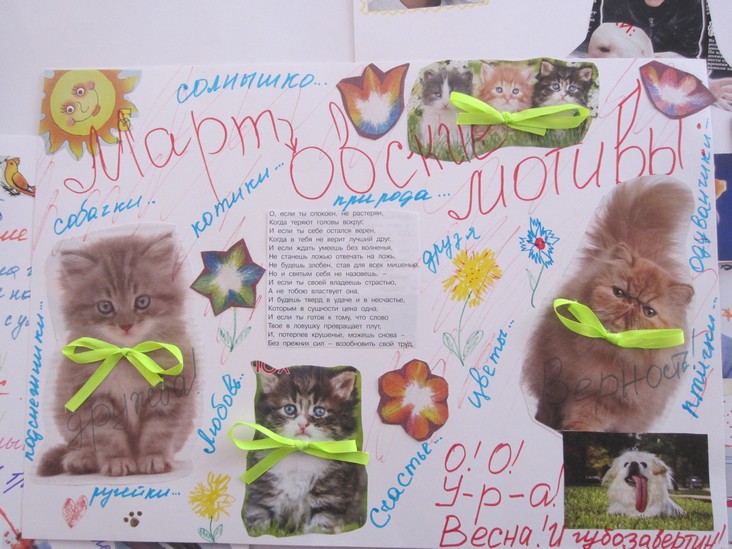 солнышко...
Мартовские
мотивы:
собачки...
котики...
природа...
одуванчики...
О, если ты спокоен, не растерян,
Когда теряют головы вокруг,
И если ты себе остался верен,
Когда в тебя не верит лучший друг,
И если ждать умеешь без волненья,
Не станешь ложью отвечать на ложь,
Не будешь злобен, став для всех мишенью,
Но и святым себя не назовешь, –
И если ты своей владеешь страстью,
А не тобою властвует она,
И будешь тверд в удаче и в несчастье,
Которым в сущности цена одна,
И если ты готов к тому, что слово
Твое в ловушку превращает плут,
И, потерпев крушенье, можешь снова –
Без прежних сил – возобновить свой труд,
друзя
цветы...
птички...
подснежники...
дружба!
Верность!
любовь...
счастье...
ручейки...
О! О!
У-р-а!
Весна! И губозавертин!